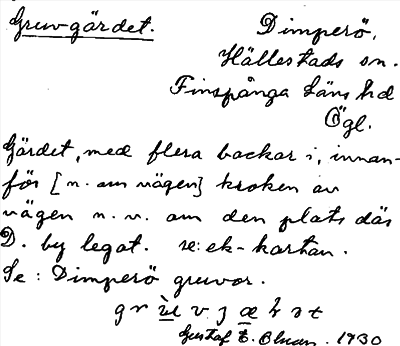 Gruvgärdet.
Dimperö,
Hällestads sn.
Finspånga Läns hd
Ögl.
Gärdet, med flera backar i, innan-
för [n. om vägen] kroken av
vägen n.v. om den plats där
D. by legat. se: ek-kartan.
Se: Dimperö gruvor.
Gustaf E. 1930